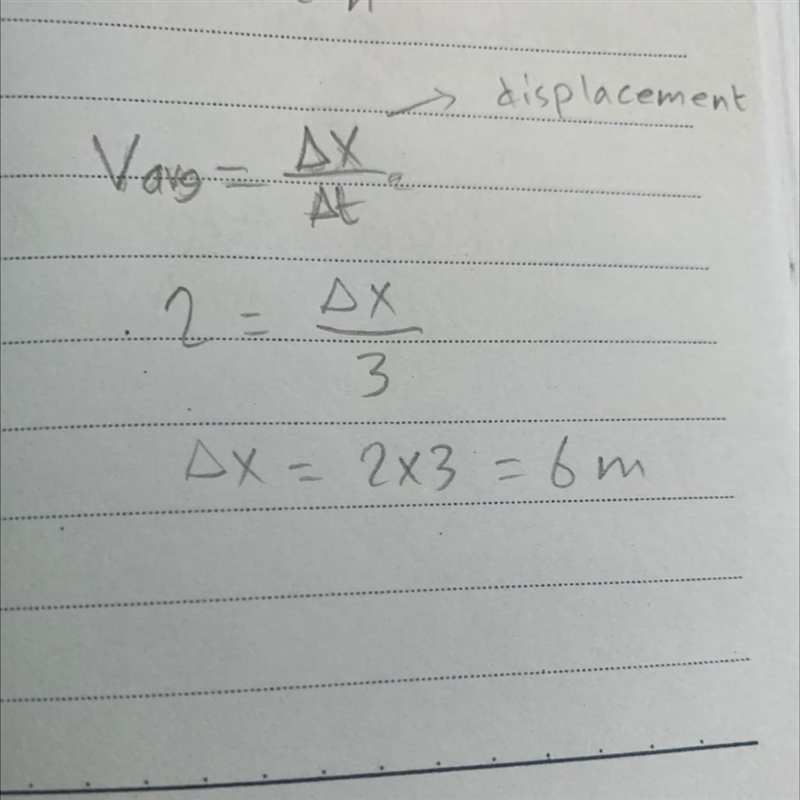 → displacement
Vavg = ΔX/Δt
2 = ΔX/3
ΔX = 2x3 = 6 m